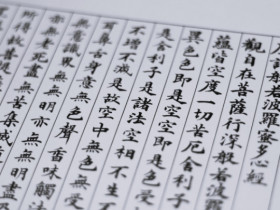 若波羅蜜多心經
觀自在菩薩行深般若波羅
蘊皆空度一切苦厄舍利子
異色色即是空空即是色受
是舍利子是諸法空相不生不
不增不減是故空中無色無受
耳鼻舌身意無色聲香味觸法
無意識界無無明亦無無明盡
亦無老死盡無苦集滅
所得故菩